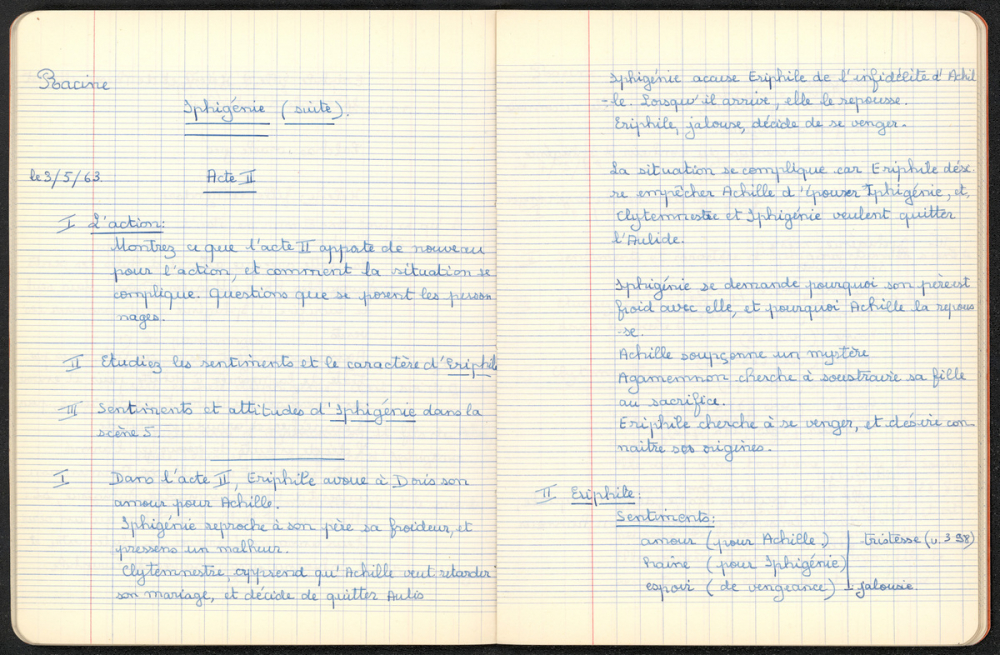 Racine
Iphigénie (suite).
le 3/5/63.
Acte II
I L'action:
Montrez ce que l'acte II apporte de nouveau
pour l'action, et comment la situation se
complique. Questions que se posent les person
nages.
II Etudiez les sentiments et le caractère d'Eriphile
III Sentiments et attitudes d'Iphigénie dans la
scène 5.
I Dans l'acte II, Eriphile avoue à Doris son
amour pour Achille.
Iphigénie reproche à son père sa froideur, et
pressens un malheur.
Clytemnestre, apprend qu'Achille veut retarder
son mariage, et décide de quitter Aulis
Iphigénie accuse Eriphile de l'infidélité d'Achil
-le. Lorsqu'il arrive, elle le repousse.
Eriphile, jalouse, décide de se venger.
La situation se complique car Eriphile dési
re empêcher Achille d'épouser Iphigénie, et,
Clytemnestre et Iphigénie veulent quitter
l'Aulide.
Iphigénie se demande pourquoi son père est
froid avec elle, et pourquoi Achille la repous
-se.
Achille soupçonne un mystère
Agamemnon cherche à soustraire sa fille
au sacrifice.
Eriphile cherche à se venger, et désire con
naitre ses origines.
II Eriphile:
Sentiments:
amour (pour Achille) tristesse (v. 398)
haine (pour Iphigénie)
espoir (de vengeance) jalousie.